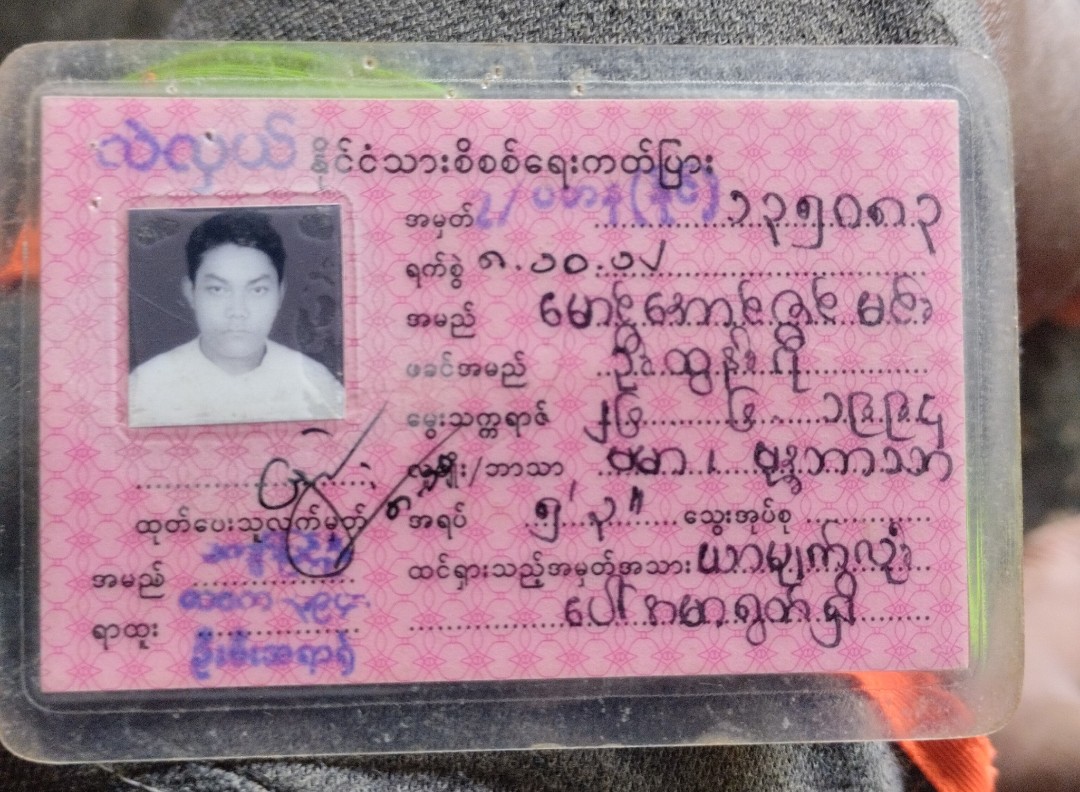 လဲလှယ် နိုင်ငံသားစိစစ်ရေးကတ်ပြား
အမှတ် ၇/ပခန(နိုင်) ၁၃၅၀၈၃
ရက်စွဲ ၈.၁၀.၁၂
အမည် မောင်အောင်ဇင်မင်း
ဖခင်အမည် ဦးထွန်းရီ
မွေးသက္ကရာဇ် ၂၆ ၆ ၁၉၉၄
လူမျိုး/ဘာသာ ဗမာ၊ ဗုဒ္ဓဘာသာ
အရပ် ၅' ၃" သွေးအုပ်စု
ထုတ်ပေးသူလက်မှတ်
ထင်ရှားသည့်အမှတ်အသား ယာမျက်လုံး
ပေါ် အမာရွတ်ရှိ
အမည်
ရာထူး
ဦးစီးအရာရှိ